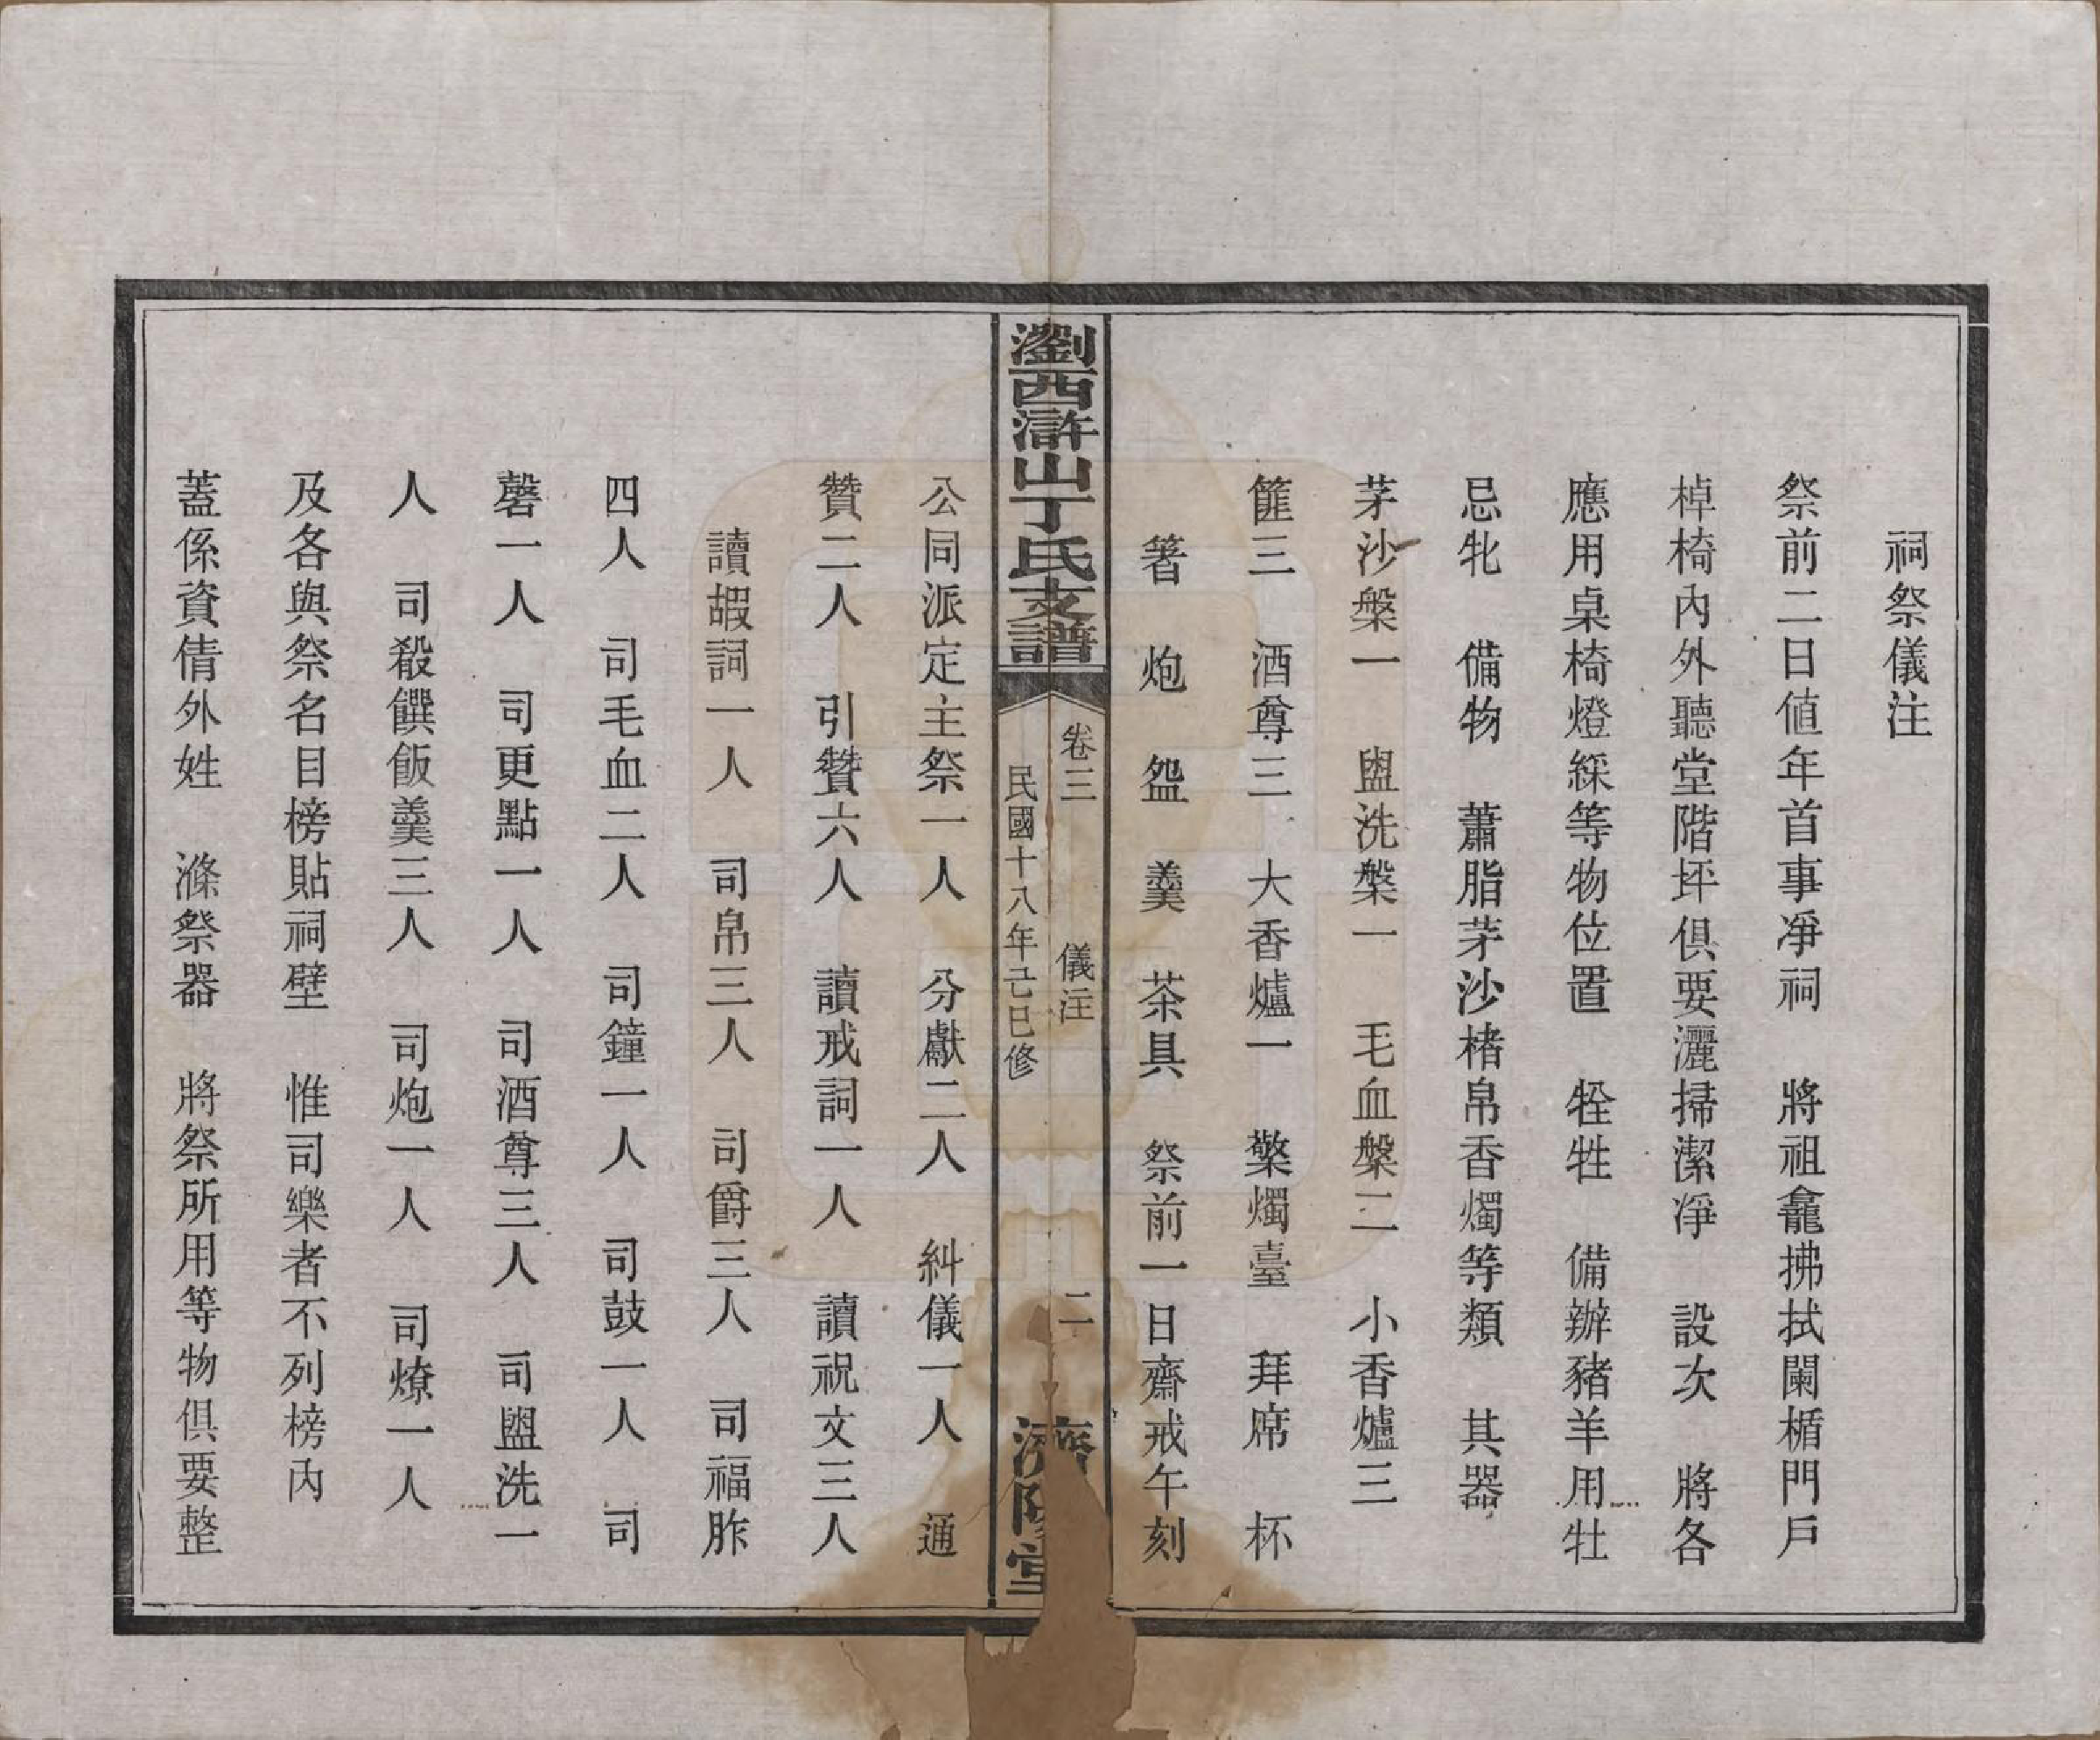 祠祭儀注
祭前二日値年首事凈祠　將祖龕拂拭闌楯門戶
棹椅內外聽堂階坪俱要灑掃潔凈　設次　將各
應用桌椅燈綵等物位置　牷牲　備辦豬羊用牡
忌牝　備物　蕭脂茅沙楮帛香燭等類　其器
茅沙槃一　盥洗槃一　毛血槃二　小香爐三
篚三　酒尊三　大香爐一　檠燭臺　拜席　杯
箸　炮　盌　羹　茶具　祭前一日齋戒午刻
瀏西滸山丁氏支譜
卷三　儀注　二
民國十八年己巳修
濟陽堂
公同派定主祭一人　分獻二人　糾儀一人　通
贊二人　引贊六人　讀戒詞一人　讀祝文三人
讀嘏詞一人　司帛三人　司爵三人　司福胙
四人　司毛血二人　司鐘一人　司鼓一人　司
磬一人　司更點一人　司酒尊三人　司盥洗一
人　司殽饌飯羹三人　司炮一人　司燎一人
及各與祭名目榜貼祠壁　惟司樂者不列榜內
蓋係資倩外姓　滌祭器　將祭所用等物俱要整